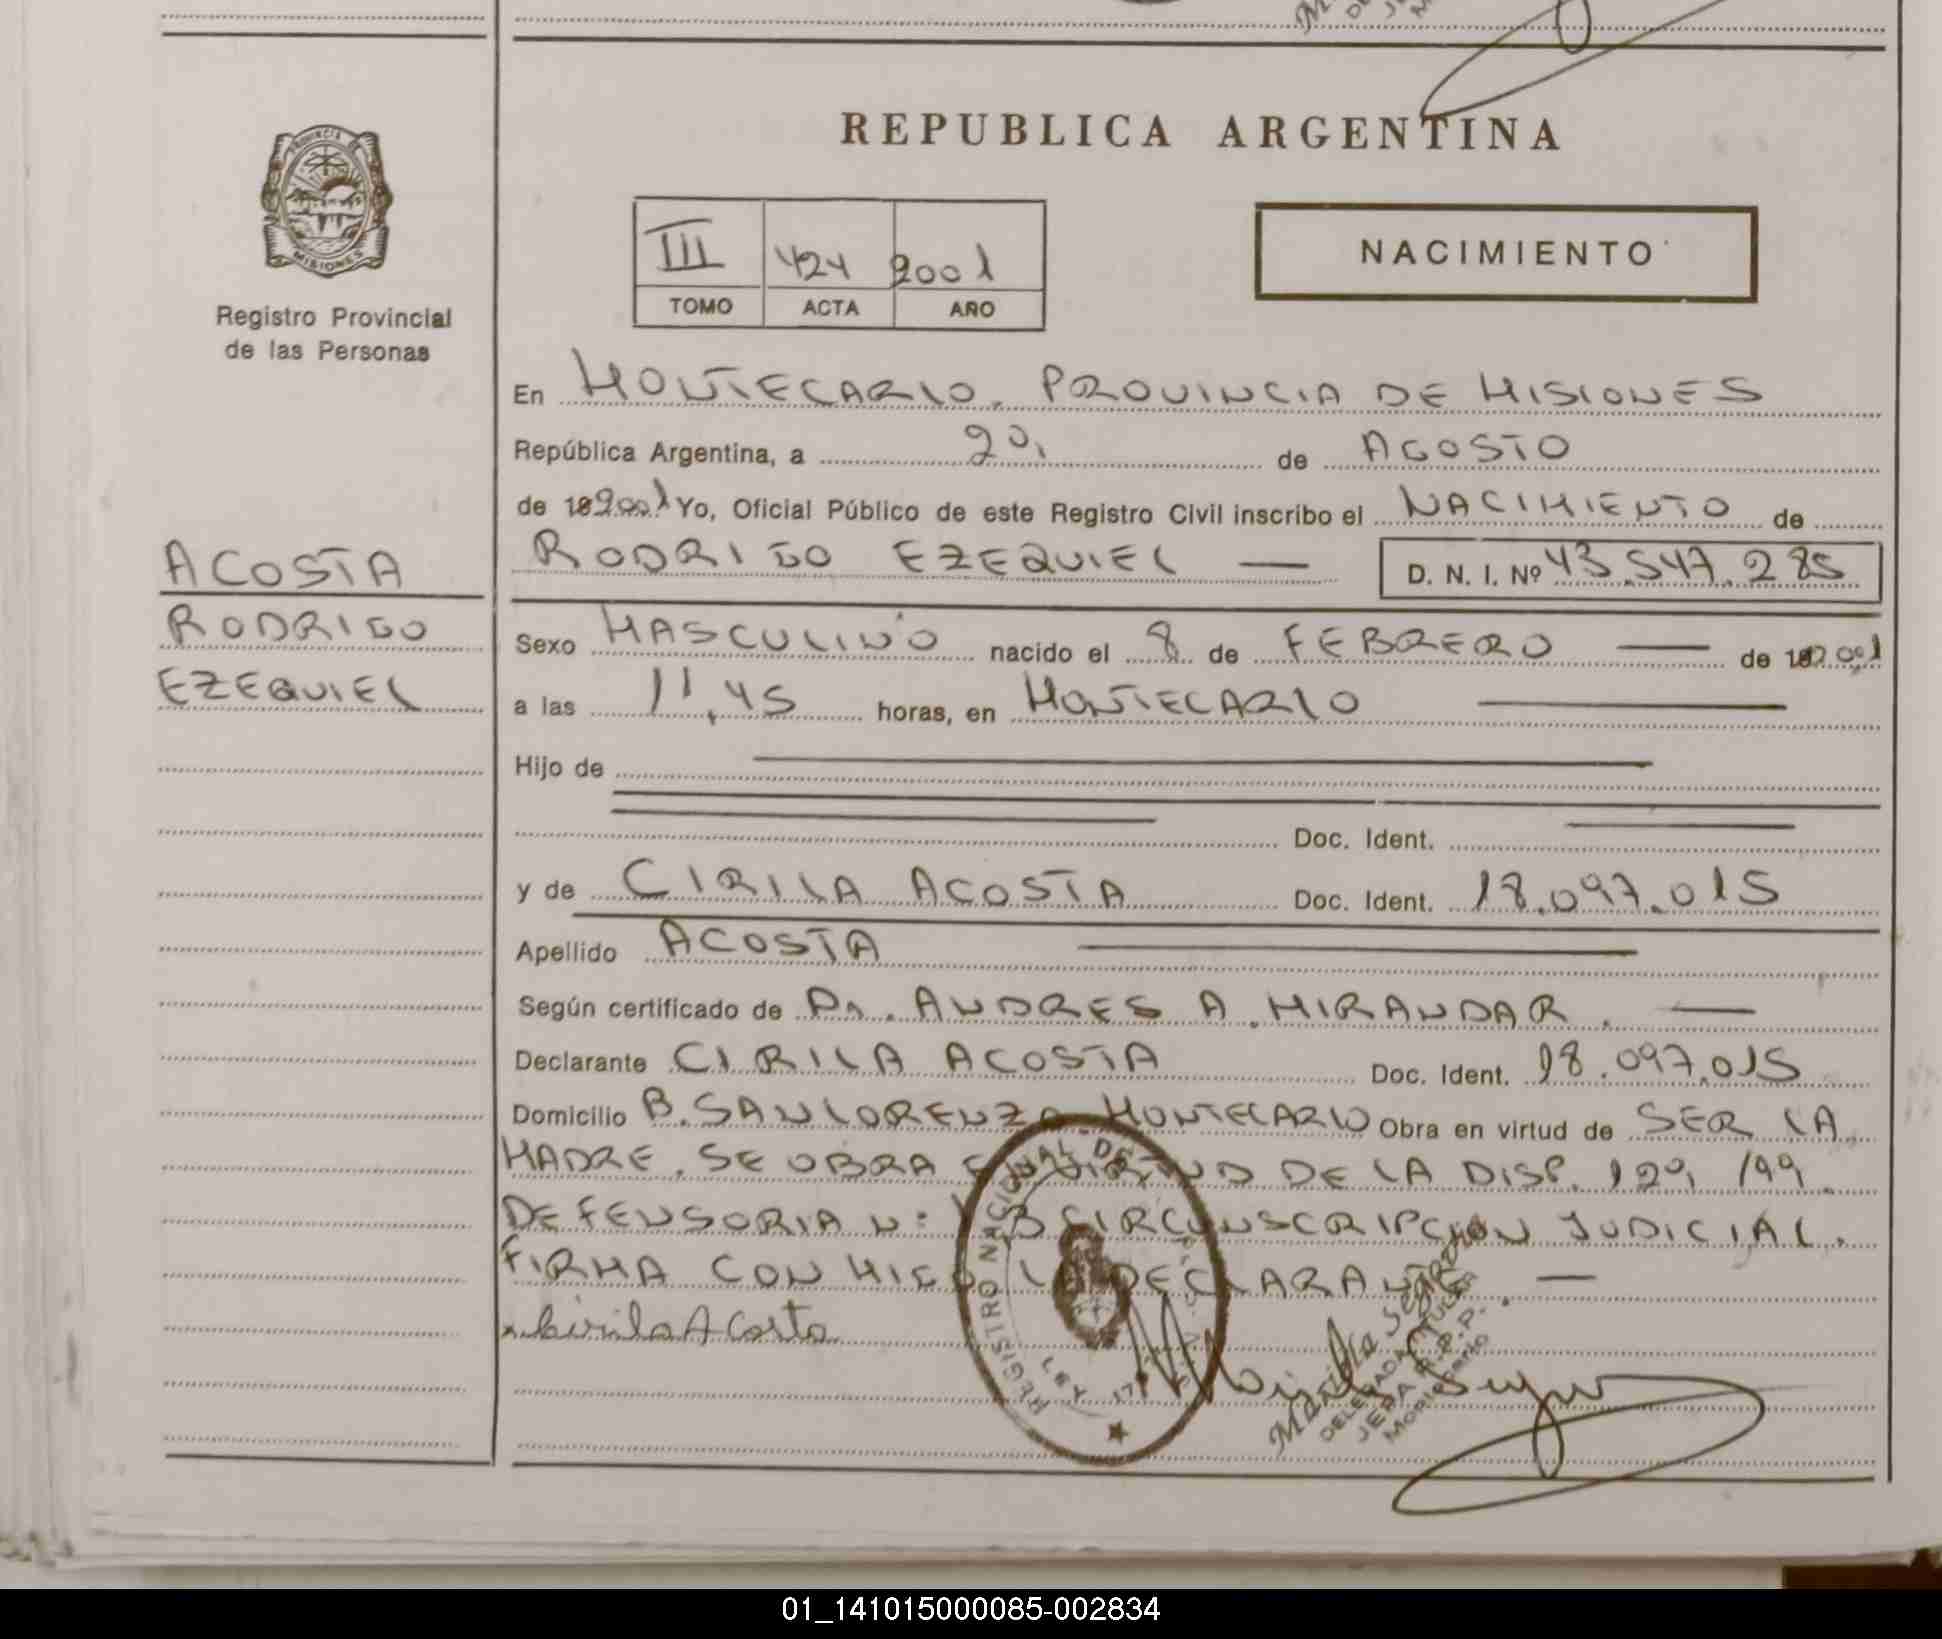 REPUBLICA ARGENTINA
PROVINCIA DE
MISIONES
Registro Provincial
de las Personas
III 424 2001
TOMO ACTA AÑO
NACIMIENTO
En MONTECARLO. PROVINCIA DE MISIONES
República Argentina, a 20, de AGOSTO
de 19 2001 Yo, Oficial Público de este Registro Civil inscribo el NACIMIENTO de
RODRIGO EZEQUIEL — D. N. I. Nº 43.547.285
ACOSTA
RODRIGO
EZEQUIEL
Sexo MASCULINO nacido el 8 de FEBRERO — de 19 2001
a las 11,45 horas, en MONTECARLO
Hijo de
Doc. Ident.
y de CIRILA ACOSTA Doc. Ident. 18.097.015
Apellido ACOSTA
Según certificado de Dr. ANDRES A. MIRANDAR. —
Declarante CIRILA ACOSTA Doc. Ident. 18.097.015
Domicilio B. SAN LORENZO MONTECARLO Obra en virtud de SER LA
MADRE. SE OBRA EN VIRTUD DE LA DISP. /99.
DEFENSORIA N: CIRCUNSCRIPCION JUDICIAL.
FIRMA CON MIGO LA DECLARANTE. —
Cirila Acosta
REGISTRO NACIONAL DE
LEY
DELEGADA TITULAR
Montecarlo
01_141015000085-002834